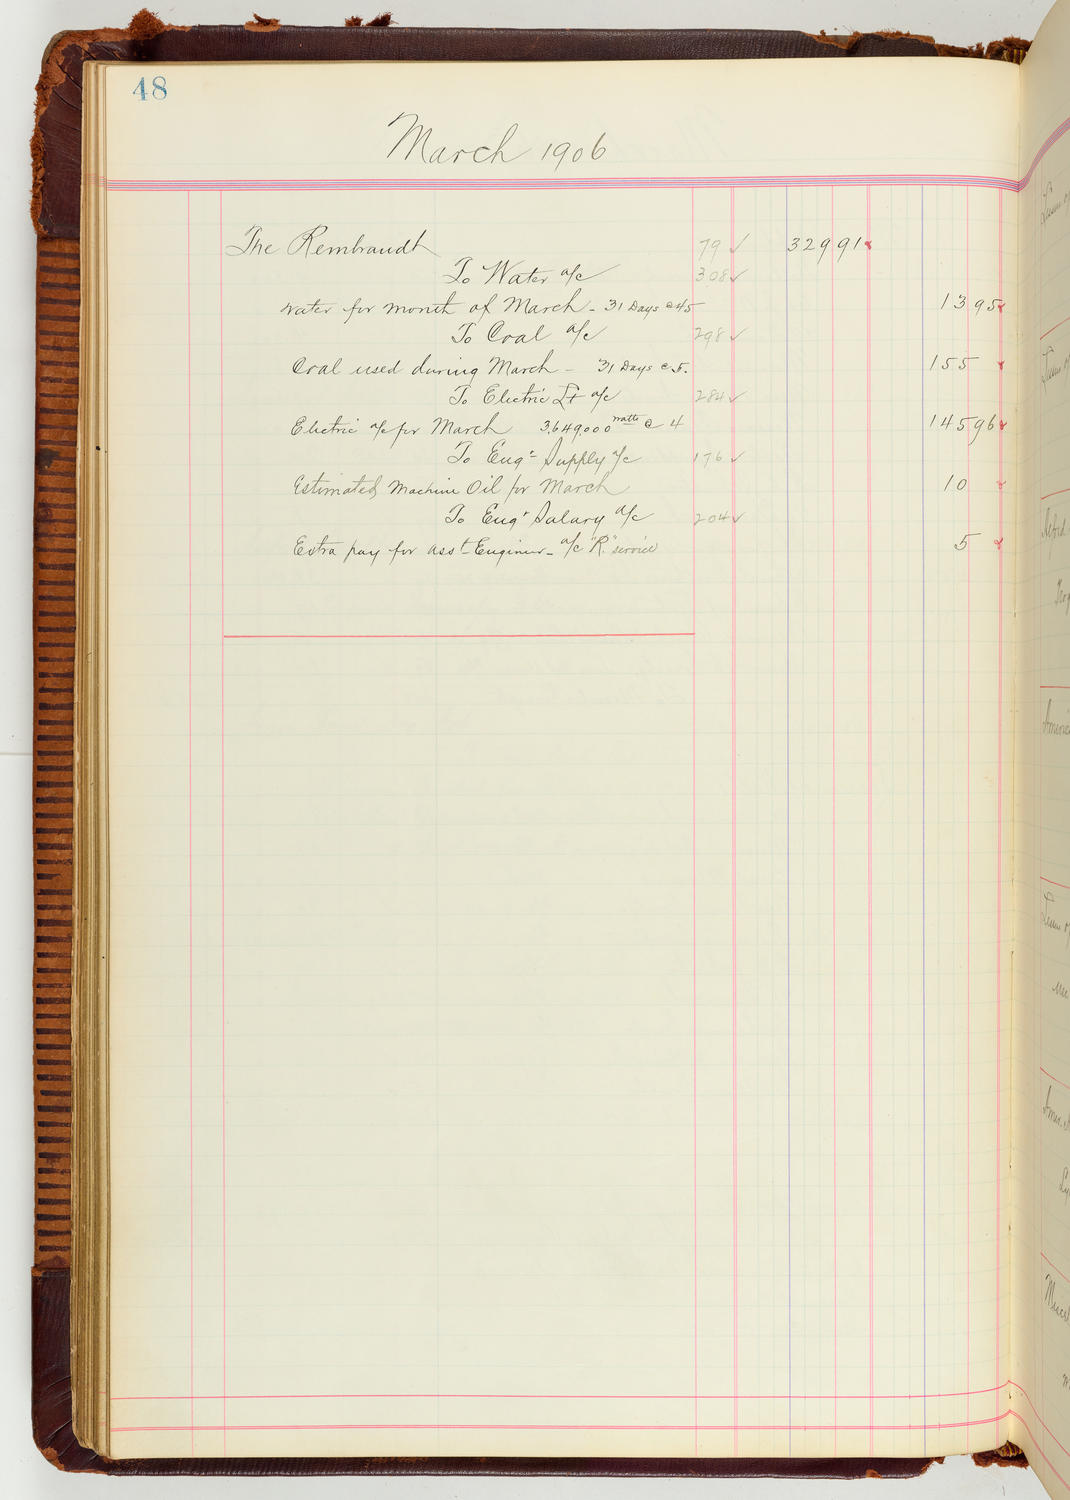 48
March 1906
The Rembrandt 79 ✓ 329 91
To Water a/c 308 ✓
Water for month of March - 31 Days @ 45 13 95
To Coal a/c 298 ✓
Coal used during March - 31 Days @ 5. 155
To Electric Lt a/c 284 ✓
Electric a/c for March 3,649,000 watts @ 4 145 96
To Engr Supply a/c 176 ✓
Estimated Machine Oil for March 10
To Engr Salary a/c 204 ✓
Extra pay for asst Engineer - a/c "R." service 5